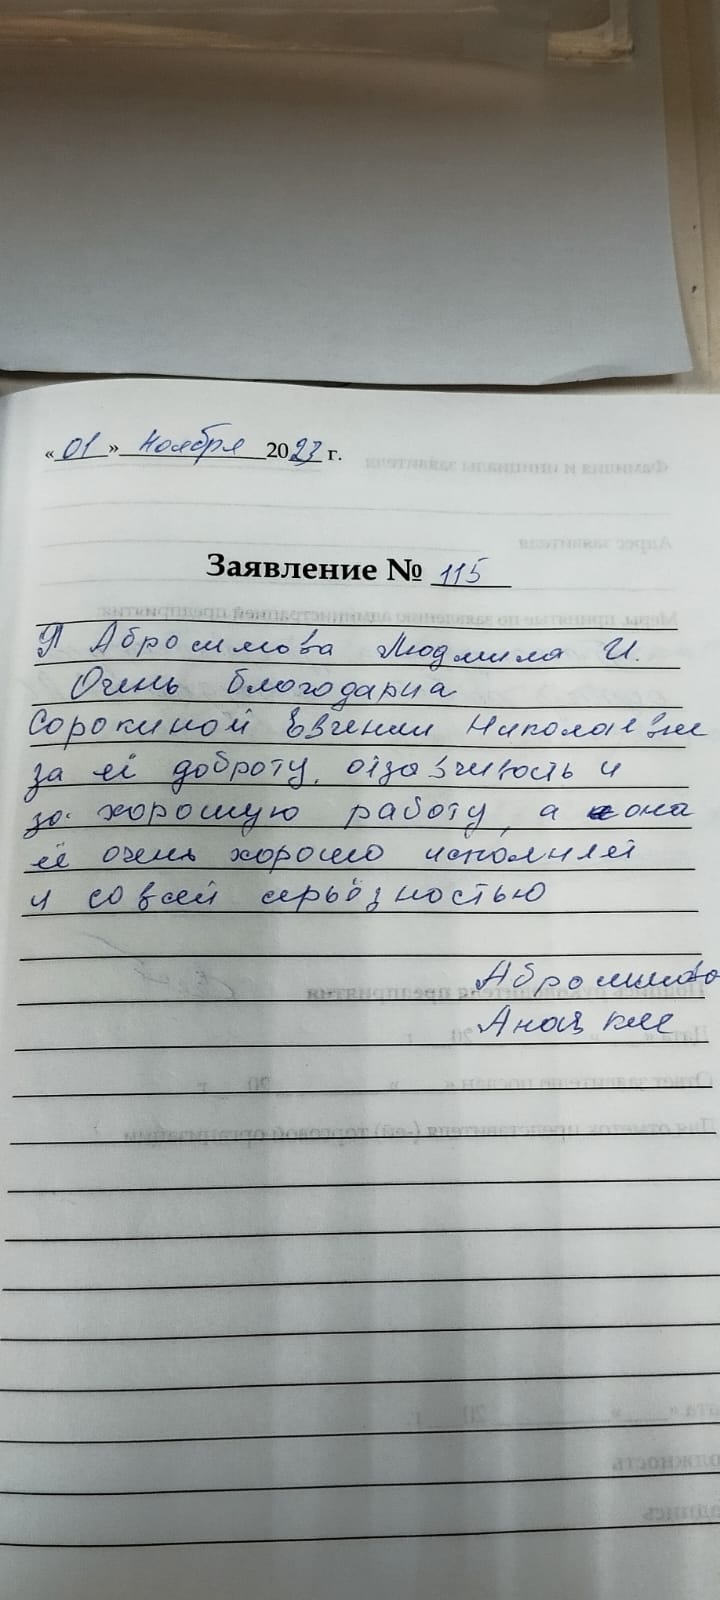 «01» Ноября 2023 г.
Заявление № 115
Я Абросимова Людмила И.
Очень благодарна
Сорокиной Евгении Николаевне
за её доброту, отзывчивость и
за хорошую работу, а она
её очень хорошо исполняет
и со всей серьёзностью
Абросимова